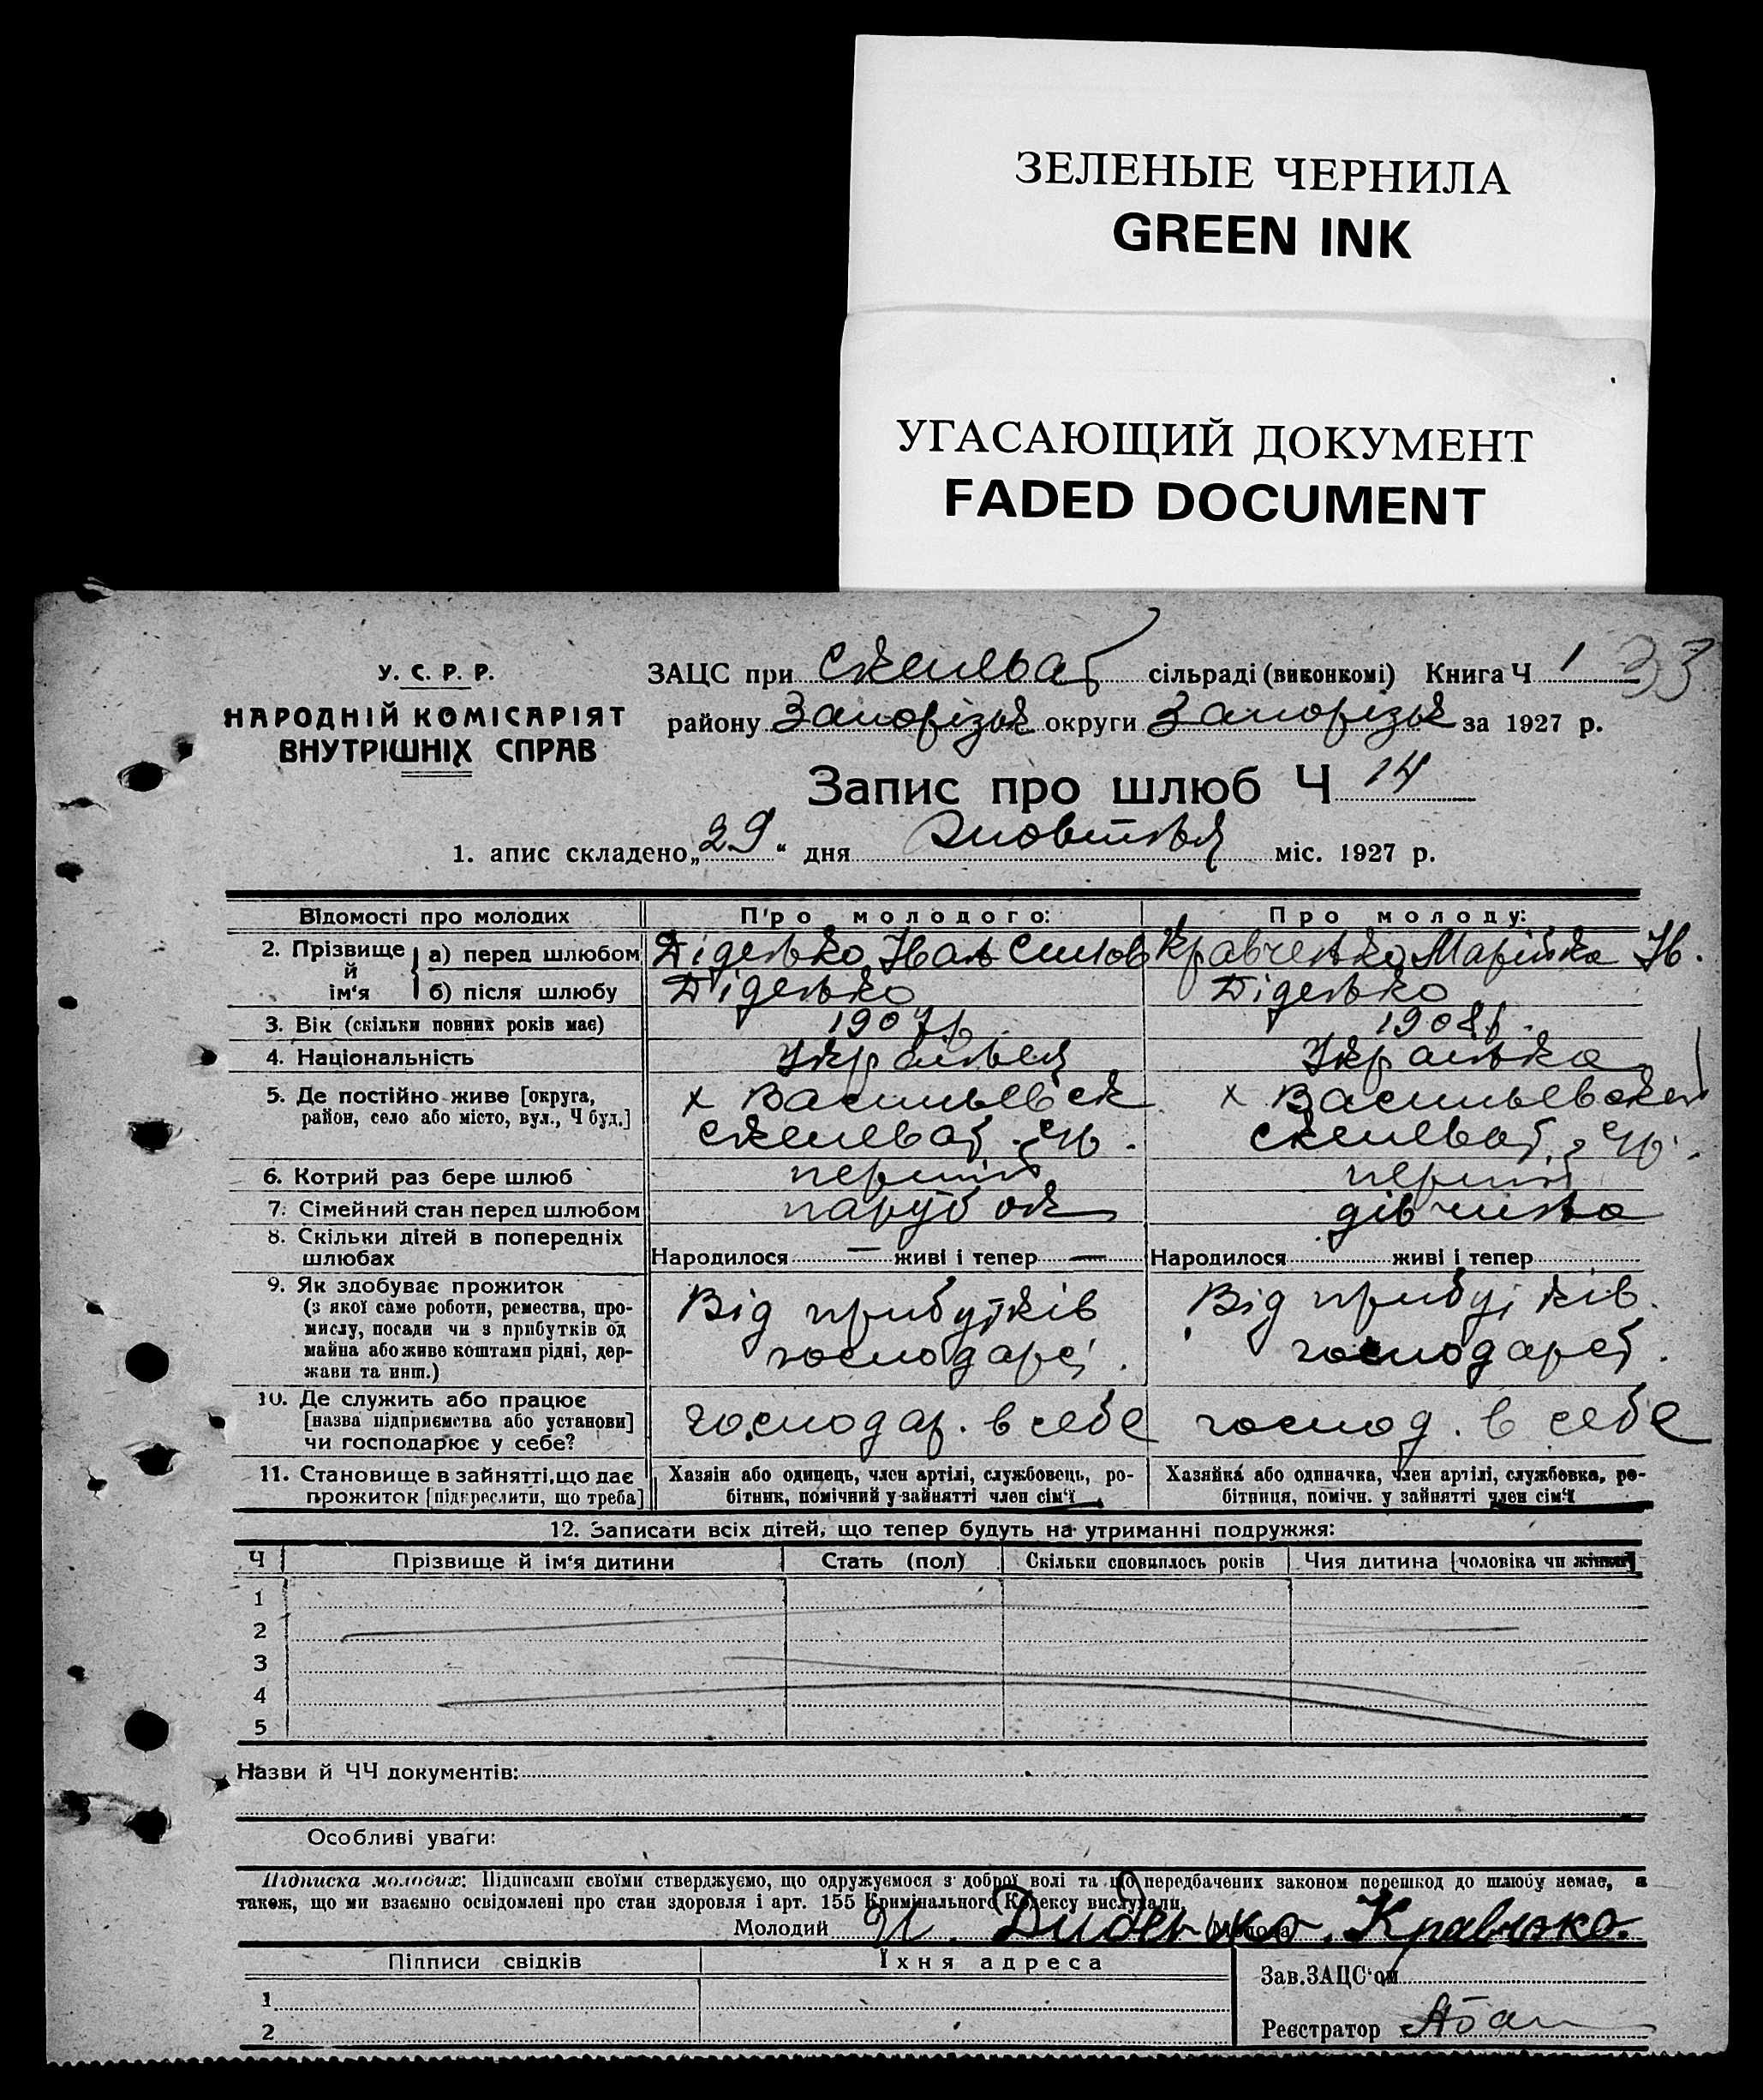 ЗЕЛЕНЫЕ ЧЕРНИЛА
GREEN INK
УГАСАЮЩИЙ ДОКУМЕНТ
FADED DOCUMENT
У. С. Р. Р.
НАРОДНІЙ КОМІСАРІЯТ
ВНУТРІШНІХ СПРАВ
ЗАЦС при Скельват сільраді (виконкомі) Книга Ч 1 33
району Запорізьк округи Запорізьк за 1927 р.
Запис про шлюб Ч 14
1. апис складено „29“ дня Жовтня міс. 1927 р.
Відомості про молодих Про молодого: Про молоду:
2. Прізвище й ім‘я а) перед шлюбом Діденко Іван Силов Кравченко Марійка Ів.
б) після шлюбу Діденко Діденко
3. Вік (скільки повних років має) 1907 р. 1908 р.
4. Національність Українец Українка
5. Де постійно живе [округа, район, село або місто, вул., Ч буд.] х Васильевск х Васильевск
Скельват Скельват
6. Котрий раз бере шлюб перший перший
7. Сімейний стан перед шлюбом парубок дівчина
8. Скільки дітей в попередніх шлюбах Народилося — живі і тепер — Народилося живі і тепер
9. Як здобуває прожиток
(з якої саме роботи, ремества, про-
мислу, посади чи з прибутків од
майна або живе коштами рідні, дер-
жави та инш.)
Від прибутків господарст. Від прибутків господарст.
10. Де служить або працює
[назва підприємства або установи]
чи господарює у себе?
господар. в себе господ. в себе
11. Становище в зайнятті, що дає
прожиток [підкреслити, що треба]
Хазяін або одинець, член артілі, службовець, ро-
бітник, помічний у зайнятті член сім‘ї
Хазяйка або одиначка, член артілі, службовка, ро-
бітниця, помічн. у зайнятті член сім‘ї
12. Записати всіх дітей, що тепер будуть на утриманні подружжя:
Ч Прізвище й ім‘я дитини Стать (пол) Скільки сповнилось років Чия дитина [чоловіка чи жінки]
1
2
3
4
5
Назви й ЧЧ документів:
Особливі уваги:
Підписка молодих: Підписами своїми стверджуємо, що одружуємося з доброї волі та що передбачених законом перешкод до шлюбу немає, а
також, що ми взаємно освідомлені про стан здоровля і арт. 155 Кримінального Кодексу вислухали.
Молодий И. Диденко Молода Кравченко.
Підписи свідків Їхня адреса
Зав. ЗАЦС‘ом
1
2
Реєстратор